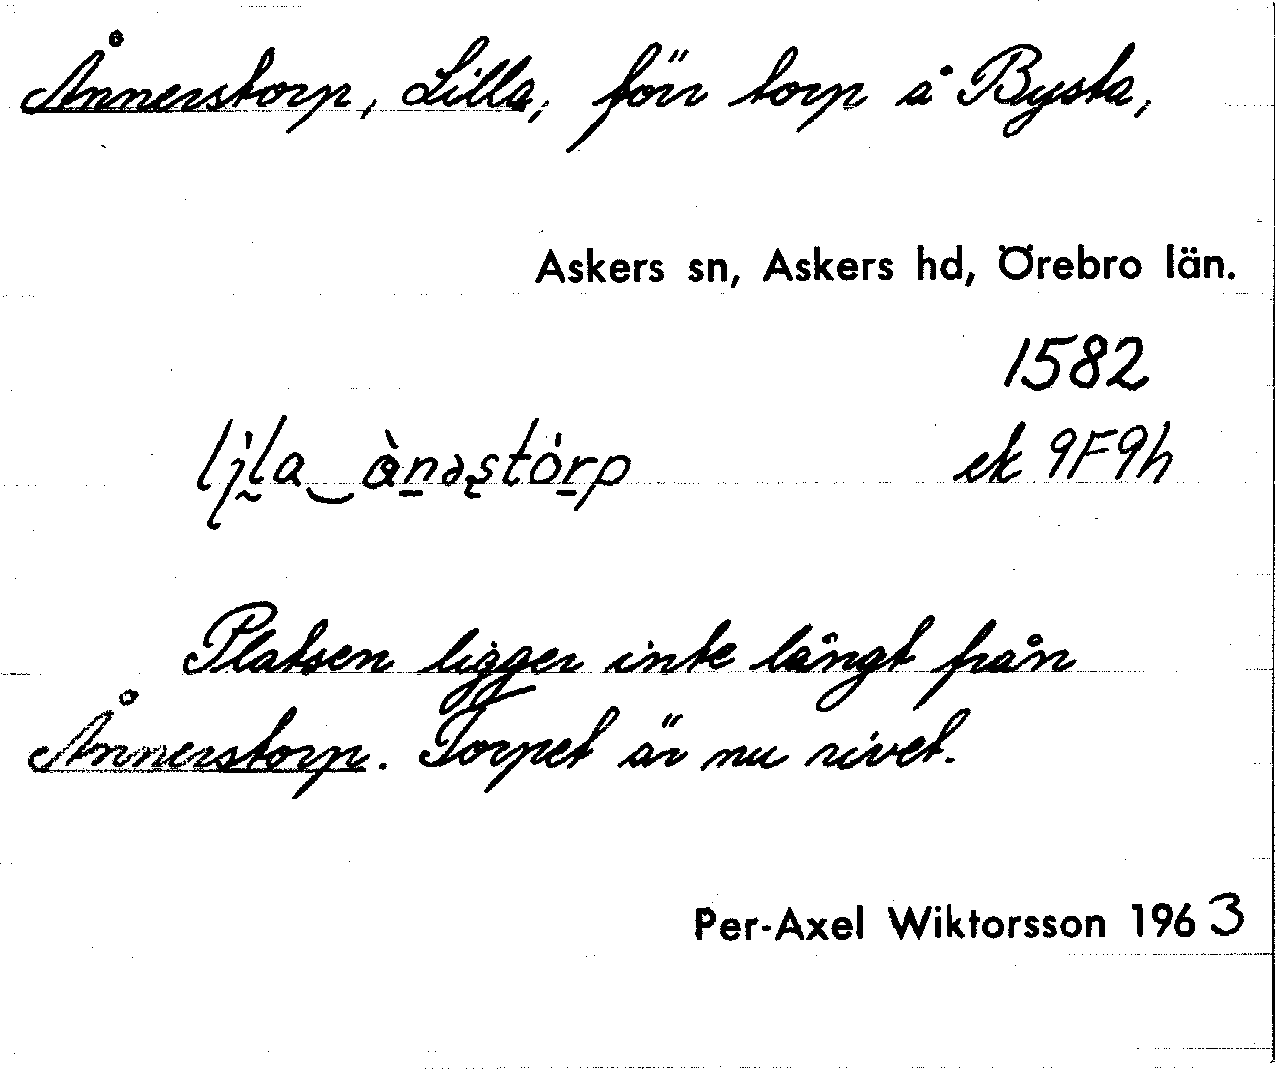 Ånnerstorp, Lilla, förr torp å Bysta,
Askers sn, Askers hd, Örebro län.
1582
ek 9F9h
Platsen ligger inte långt från
Ånnerstorp. Torpet är nu rivet.
Per-Axel Wiktorsson 1963